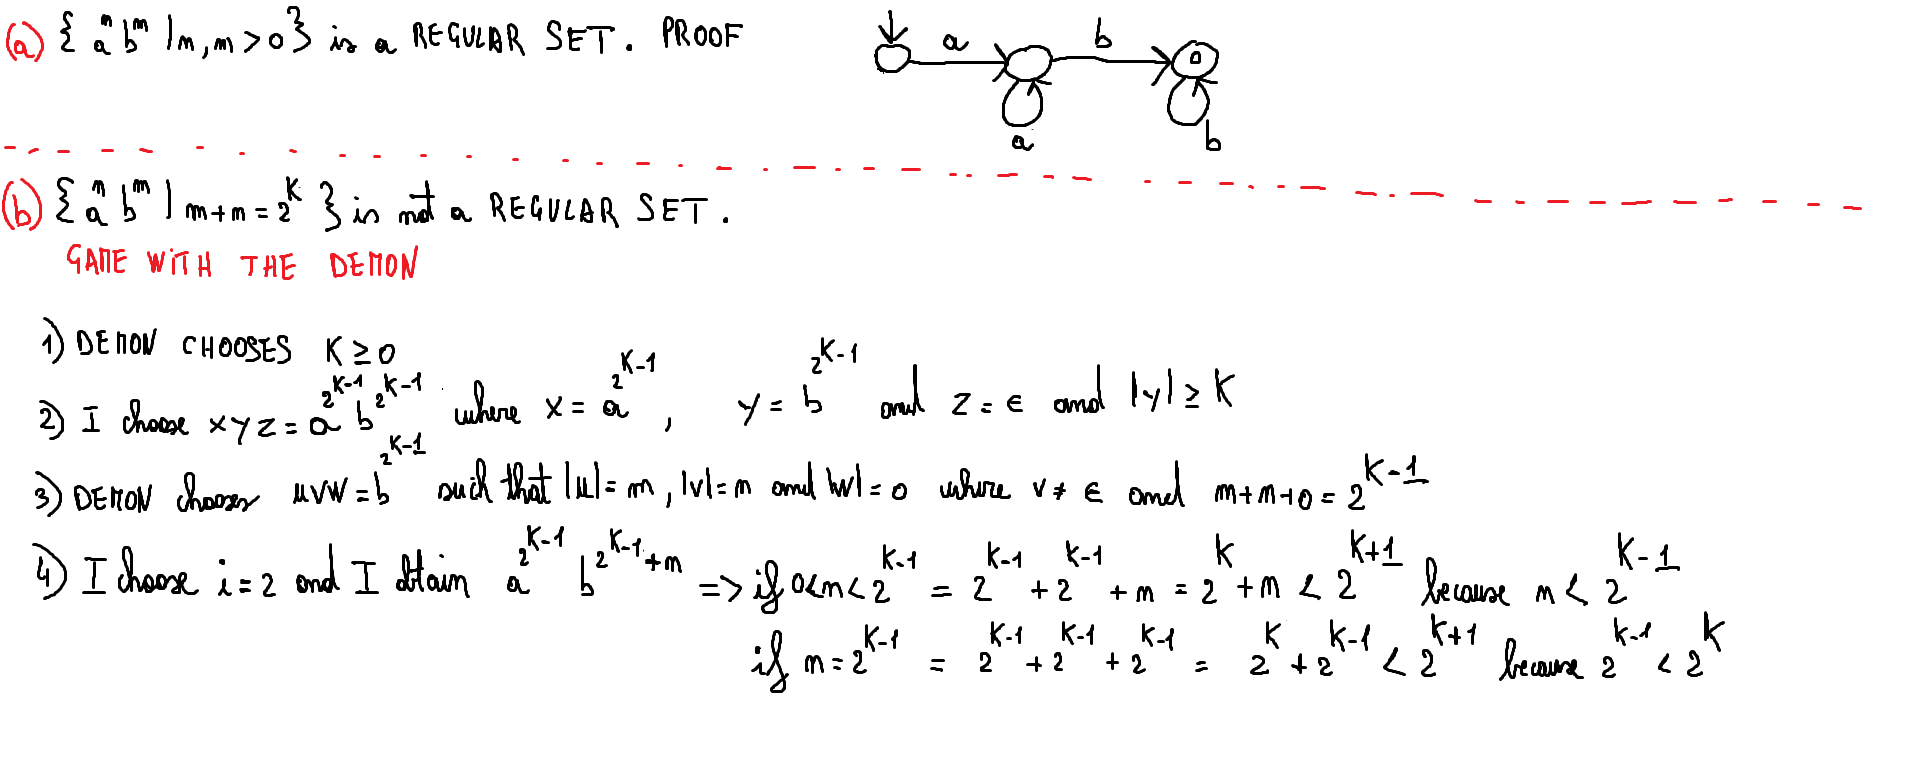 (a) { a^n b^m | n, m > 0 } is a REGULAR SET. PROOF
a b
a b
(b) { a^n b^m | m+n = 2^K } is not a REGULAR SET.
GAME WITH THE DEMON
1) DEMON CHOOSES K ≥ 0
2) I choose xyz = a^{2^{K-1}} b^{2^{K-1}} where x = a^{2^{K-1}}, y = b^{2^{K-1}} and z = ε and |y| ≥ K
3) DEMON chooses uvw = b^{2^{K-1}} such that |u| = m, |v| = n and |w| = o where v ≠ ε and m+n+o = 2^{K-1}
4) I choose i = 2 and I obtain a^{2^{K-1}} b^{2^{K-1}+n} => if 0<n<2^{K-1} = 2^{K-1} + 2^{K-1} + n = 2^K + n < 2^{K+1} because n < 2^{K-1}
if n = 2^{K-1} = 2^{K-1} + 2^{K-1} + 2^{K-1} = 2^K + 2^{K-1} < 2^{K+1} because 2^{K-1} < 2^K